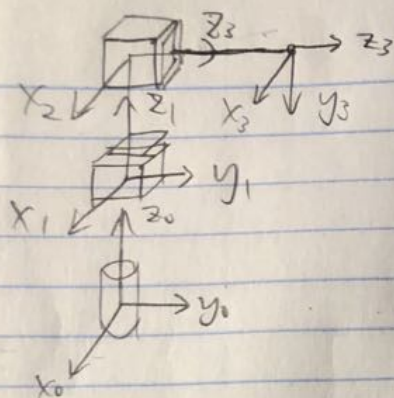 z3 z3
x2 z1 x3 y3
x1 z0 y1
y0
x0